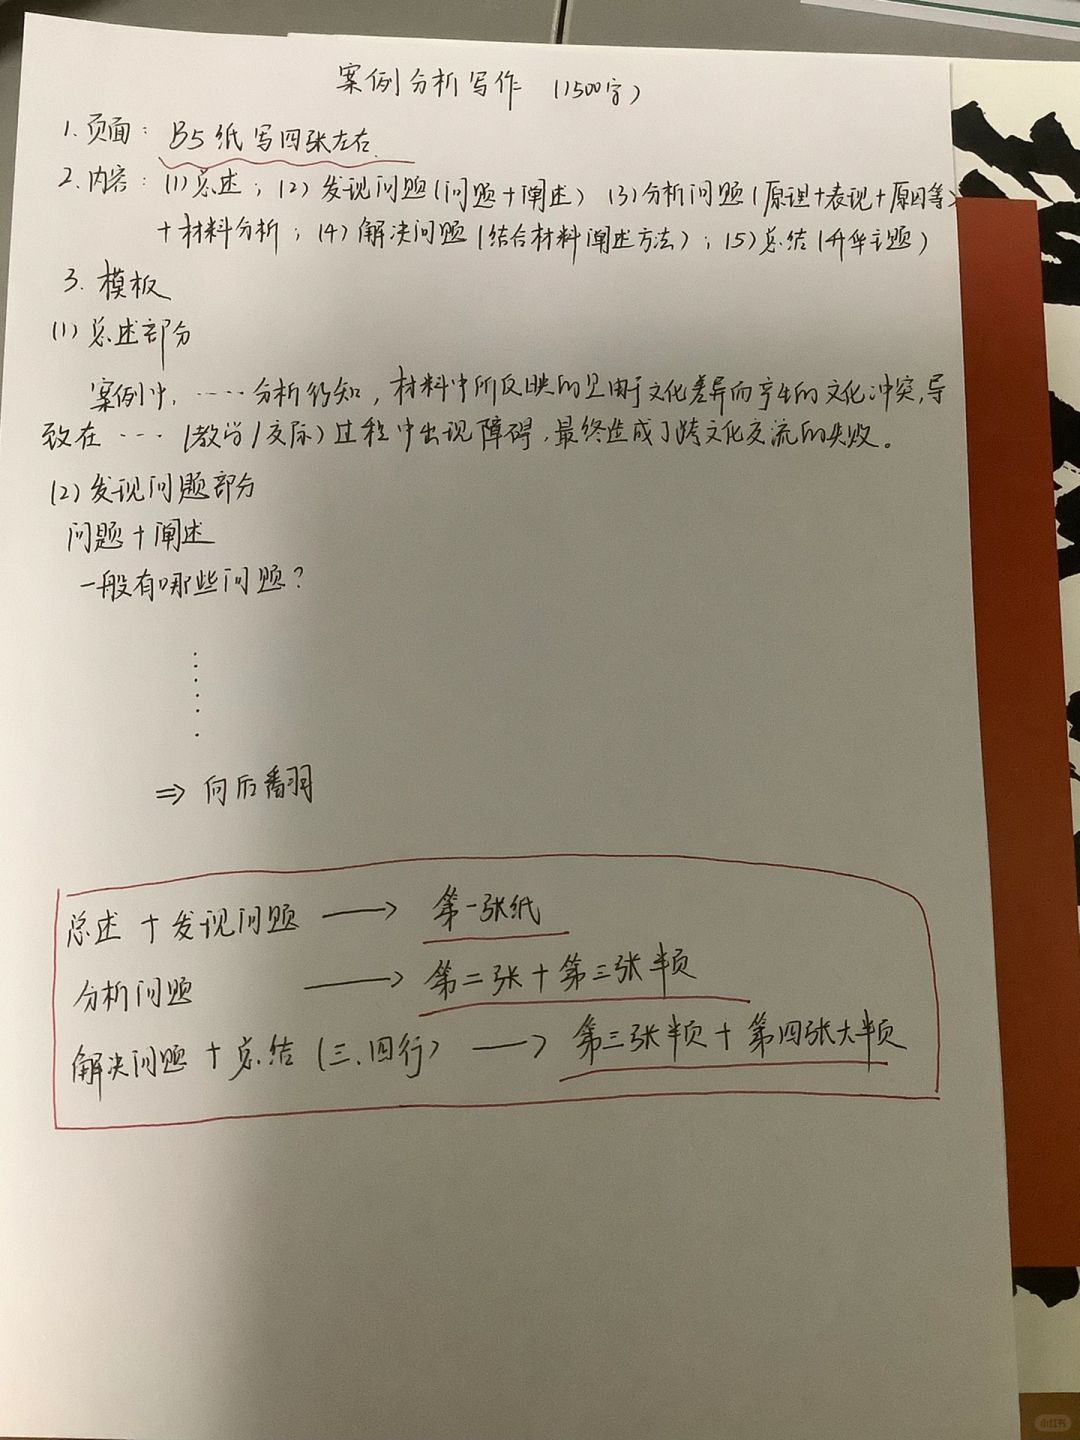 案例分析写作 (1500字)
1. 页面: B5纸写四张左右.
2. 内容: (1)总述; (2)发现问题(问题+阐述) (3)分析问题(原理+表现+原因等)
+材料分析; (4)解决问题(结合材料阐述方法); (5)总结(升华主题)
3. 模板
(1)总述部分
案例中, ……分析得知, 材料中所反映的是由于文化差异而产生的文化冲突,导
致在 … (教学/交际)过程中出现障碍,最终造成了跨文化交流的失败。
(2)发现问题部分
问题+阐述
一般有哪些问题?
......
⇒ 向后翻
总述+发现问题 → 第一张纸
分析问题 → 第二张+第三张半页
解决问题+总结(三.四行) → 第三张半页+第四张大半页
小红书